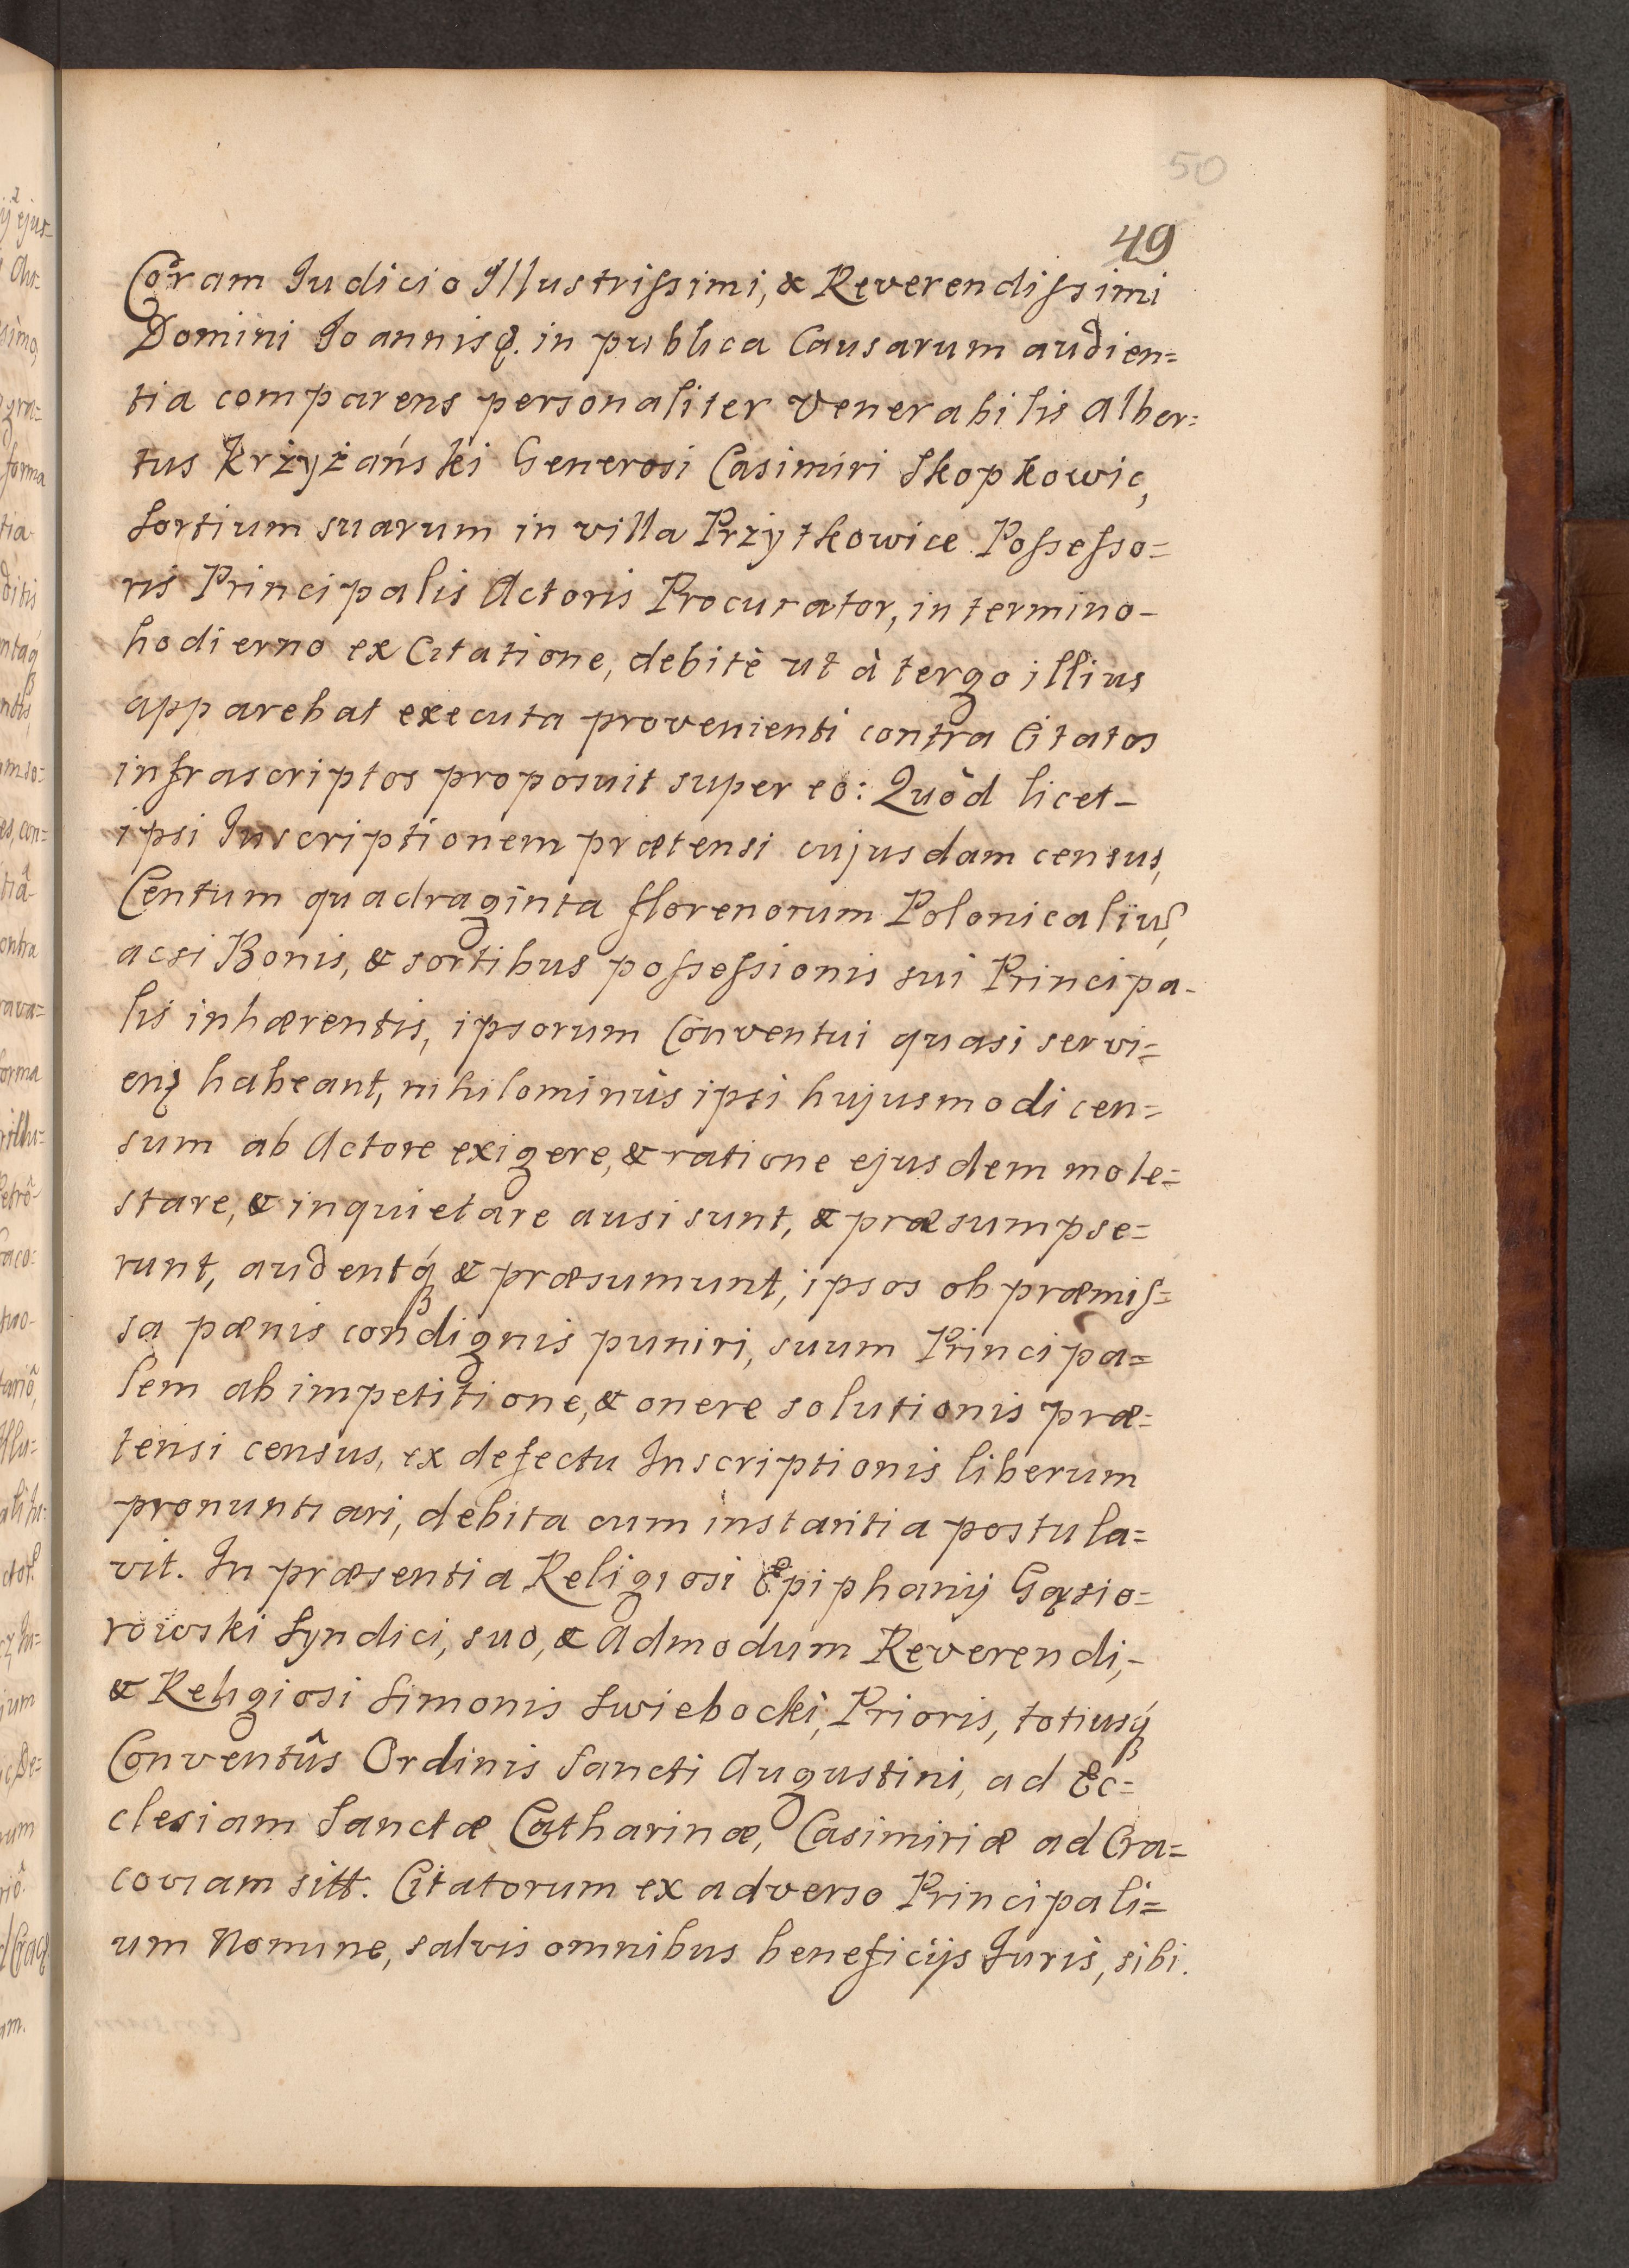 50
49
Coram Judicio Illustrissimi, & Reverendissimi
Domini Joannis &. in publica Causarum audien=
tia comparens personaliter Venerabilis Alber=
tus Krżyżáński Generosi Casimiri Skopkowic,
Sortium suarum in villa Przytkowice Possesso=
ris Principalis Actoris Procurator, in termino-
hodierno ex Citatione, debitè ut à tergo illius
apparebat executa provenienti contra Citatos
infrascriptos proposuit super eo: Quòd licet-
ipsi Inscriptionem prætensi cujusdam census,
Centum quadraginta florenorum Polonicaliũ,
acsi Bonis, & sortibus possessionis sui Principa-
lis inhærentis, ipsorum Conventui quasi servi=
enş habeant, nihilominùs ipsi hujusmodi cen=
sum ab Actore exigere, & ratione ejusdem mole=
stare, & inquietare ausi sunt, & præsumpse=
runt, audentq́ & præsumunt, ipsos ob præmis=
sa pænis condignis puniri, suum Principa=
lem ab impetitione, & onere solutionis præ=
tensi census, ex defectu Inscriptionis liberum
pronuntiari, debita cum instantia postula=
vit. In præsentia Religiosi Epiphanij Gąsio=
rowski Syndici, suo, & Admodum Reverendi,-
& Religiosi Simonis Swiebocki, Prioris, totiusq́
Conventûs Ordinis Sancti Augustini, ad Ec=
clesiam Sanctæ Catharinæ, Casimiriæ ad Cra=
coviam sitt. Citatorum ex adverso Principali=
um Nomine, salvis omnibus beneficijs Juris, sibi.